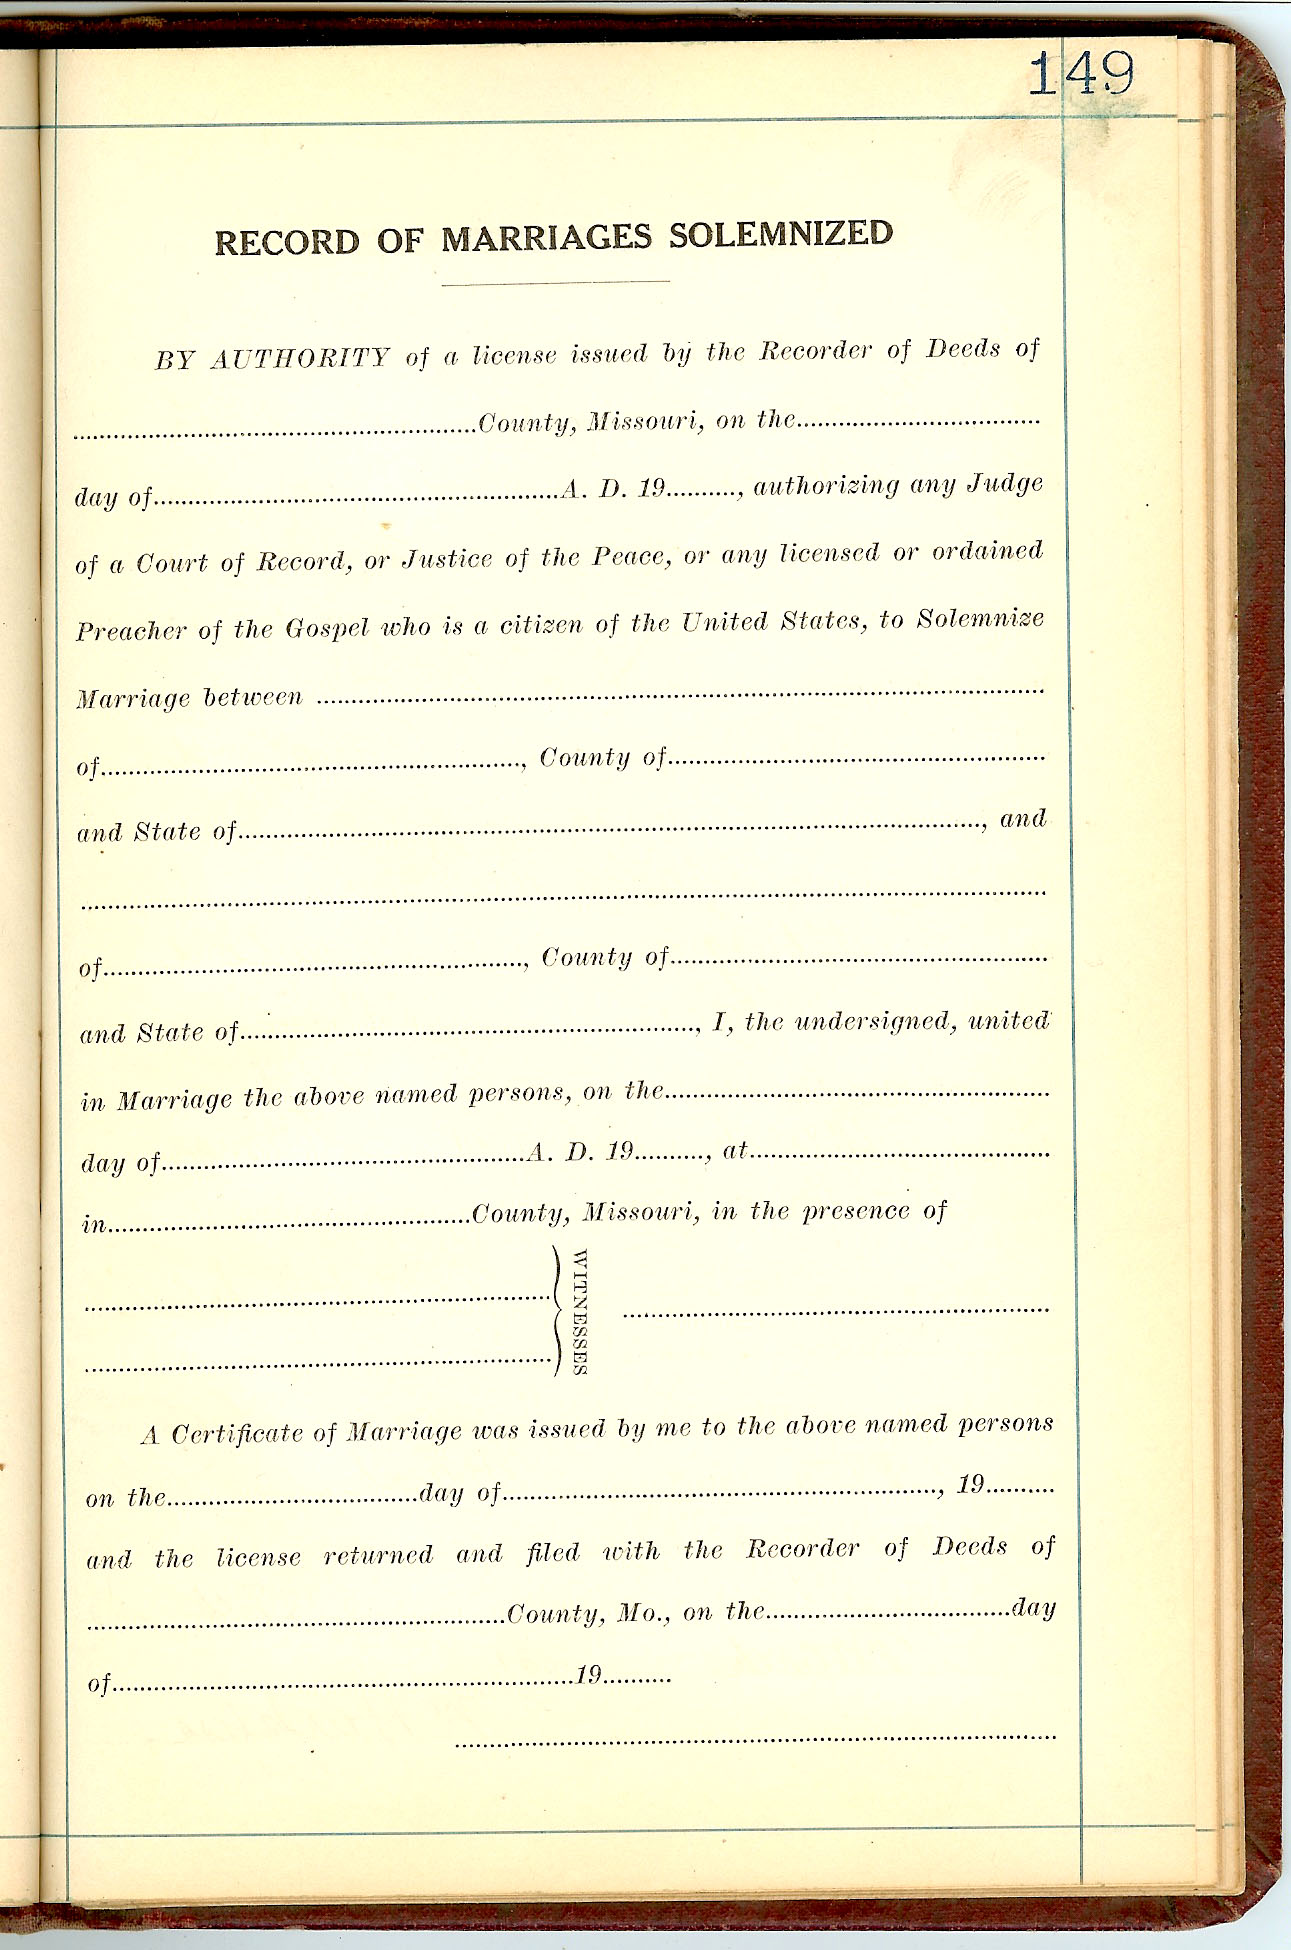 149
RECORD OF MARRIAGES SOLEMNIZED
BY AUTHORITY of a license issued by the Recorder of Deeds of
....................County, Missouri, on the....................
day of....................A. D. 19.........., authorizing any Judge
of a Court of Record, or Justice of the Peace, or any licensed or ordained
Preacher of the Gospel who is a citizen of the United States, to Solemnize
Marriage between ....................
of...................., County of....................
and State of...................., and
....................
of...................., County of....................
and State of...................., I, the undersigned, united
in Marriage the above named persons, on the....................
day of....................A. D. 19.........., at....................
in....................County, Missouri, in the presence of
WITNESSES
A Certificate of Marriage was issued by me to the above named persons
on the....................day of...................., 19..........
and the license returned and filed with the Recorder of Deeds of
....................County, Mo., on the....................day
of....................19..........